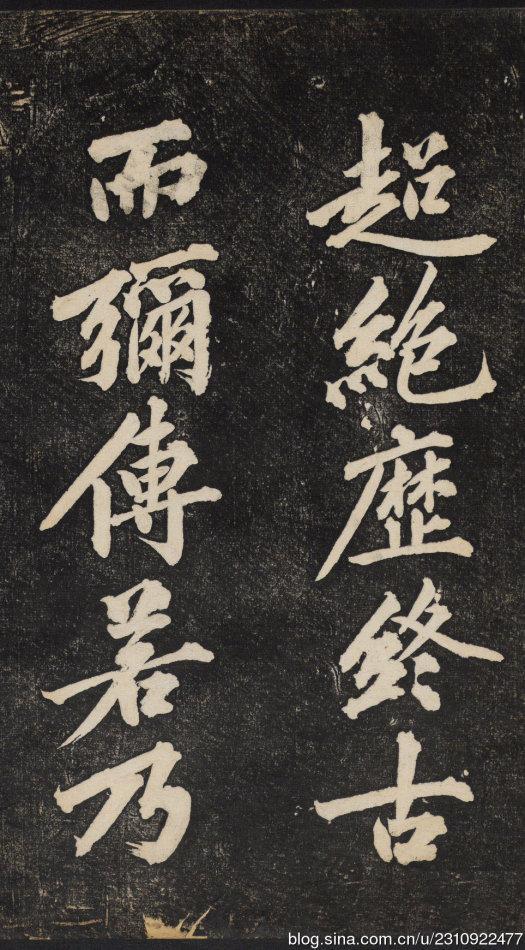 超絶歷終古
而彌傳若乃
blog.sina.com.cn/u/2310922477